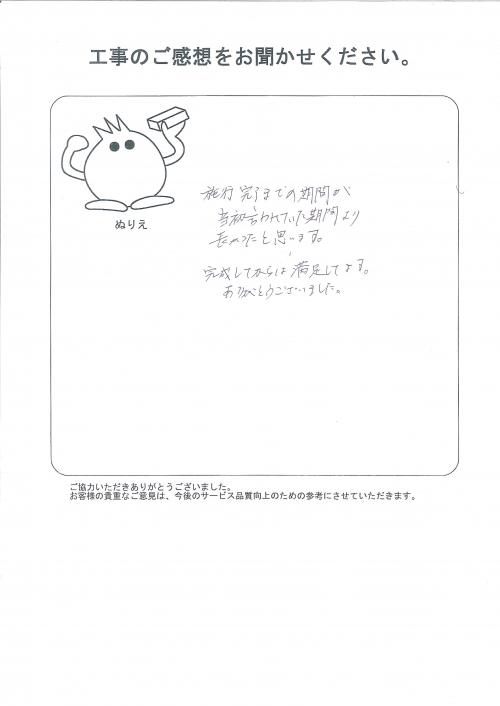 工事のご感想をお聞かせください。
ぬりえ
施行完了までの期間が
当初言われていた期間より
長かったと思います。
完成してからは満足してます。
ありがとうございました。
ご協力いただきありがとうございました。
お客様の貴重なご意見は、今後のサービス品質向上のための参考にさせていただきます。